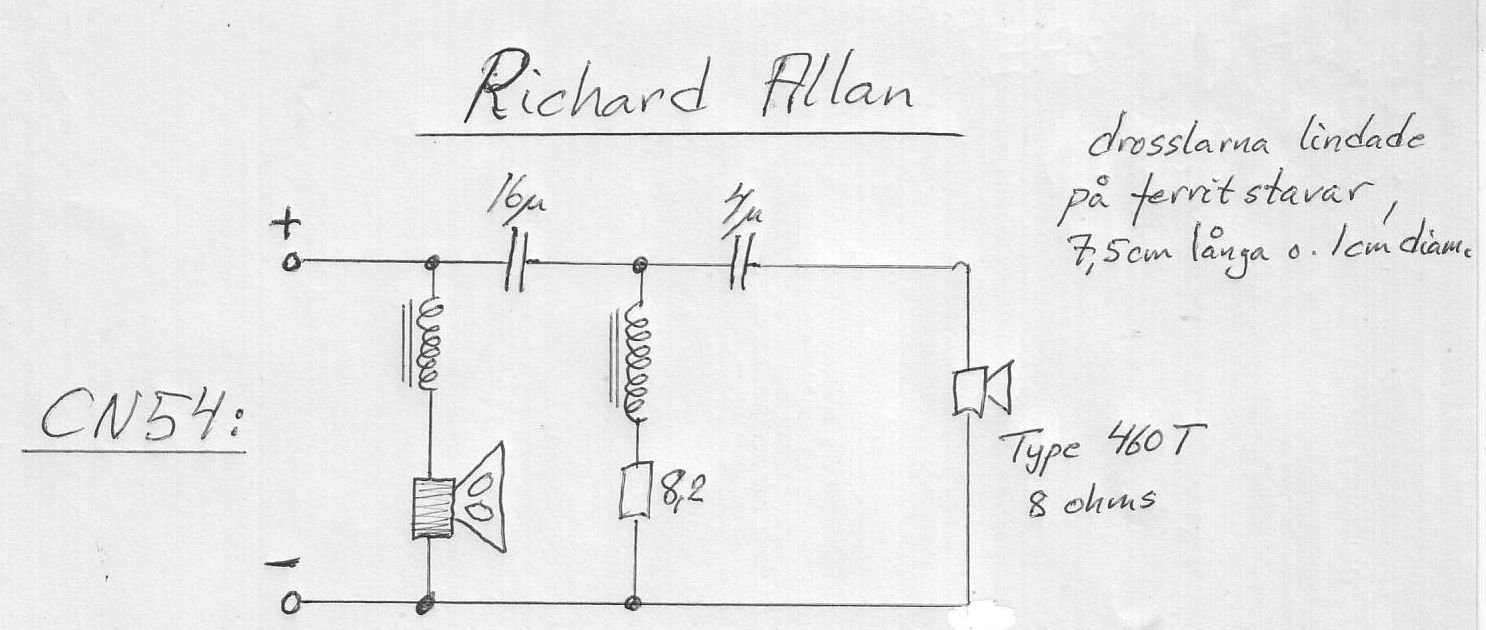 Richard Allan
drosslarna lindade
på ferritstavar,
7,5cm långa o. 1cm diam.
16µ
4µ
+
CN54:
8,2
Type 460T
8 ohms
-